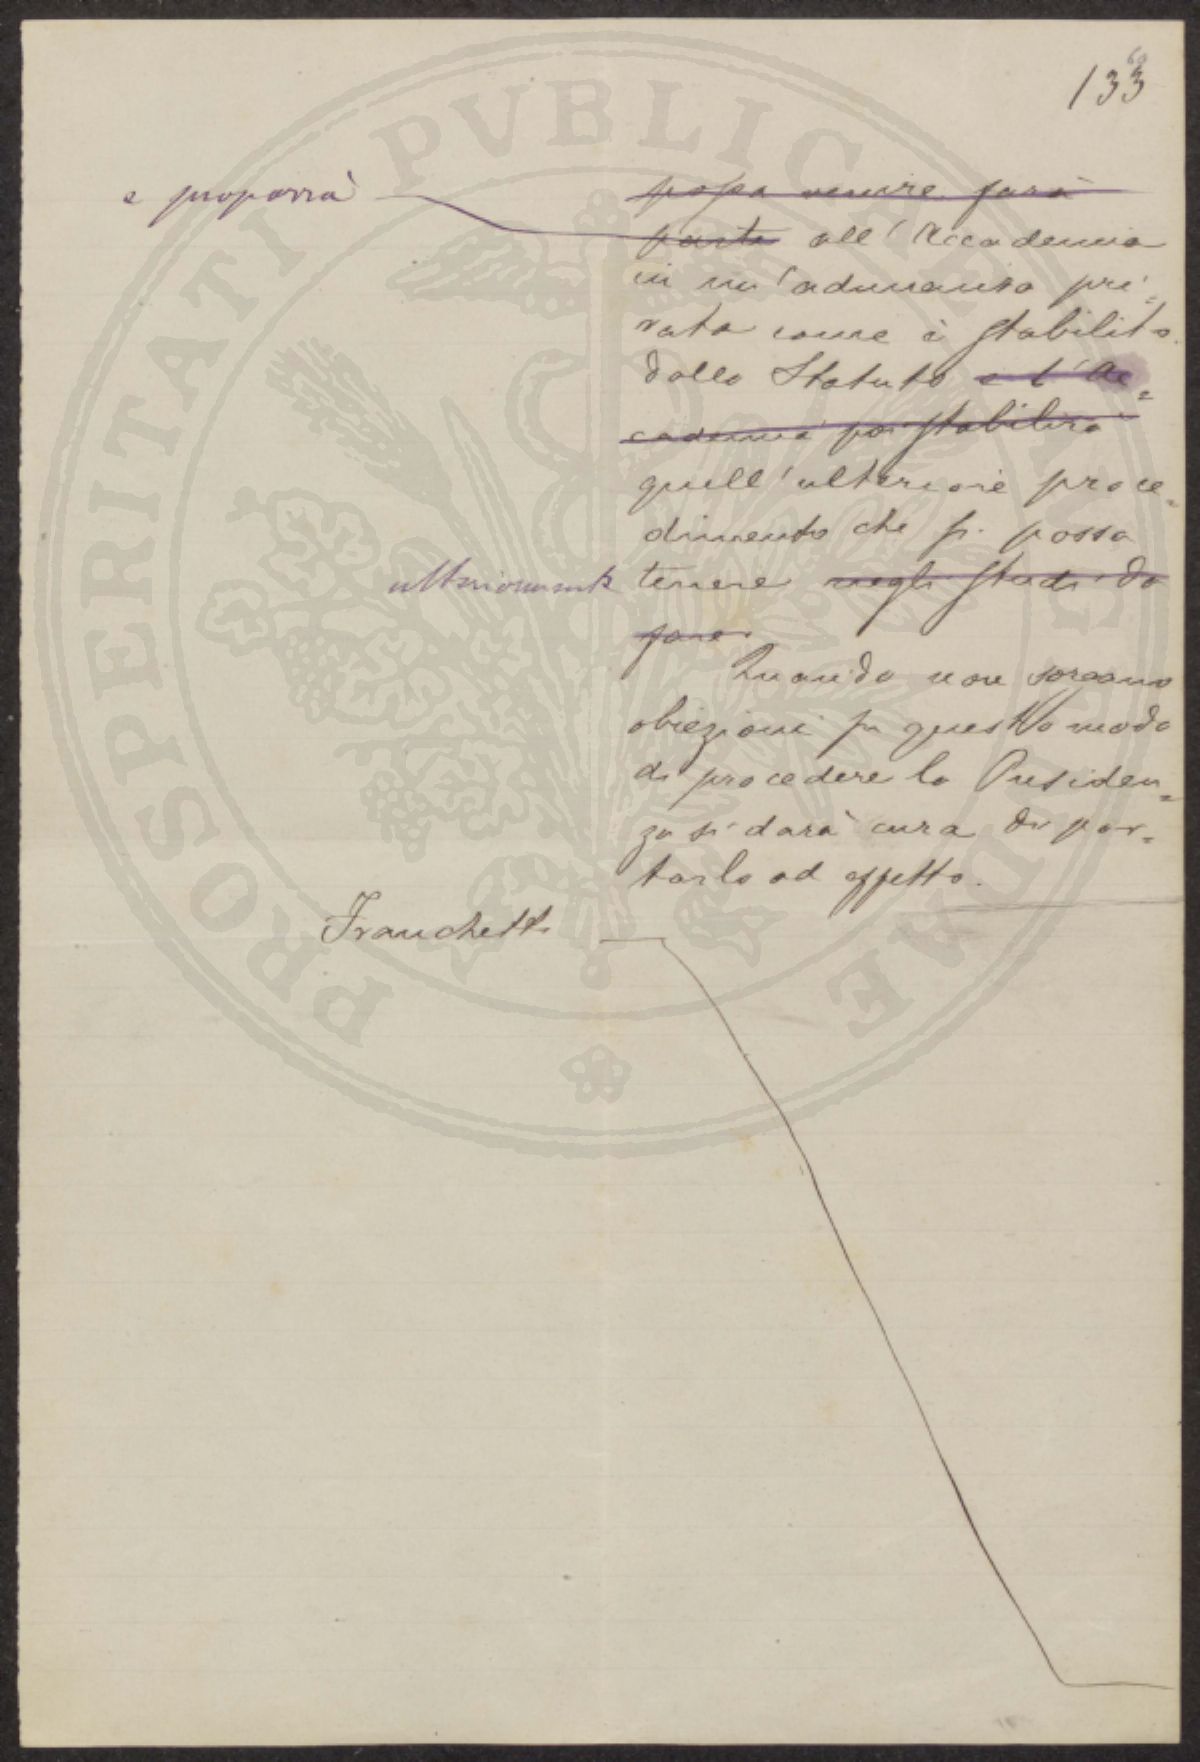 133
e proporrà
possa venire farà
parte all'Accademia
in un'adunanza pri=
vata come è stabilito
dallo Statuto e l'Ac=
cademia poi stabilirà
quell'ulteriore proce=
dimento che si possa
ulteriormente
tenere negli studi da
fare.
Quando non sorgano
obiezioni su questo modo
di procedere la Presiden=
za si darà cura di por=
tarlo ad effetto.
Franchetti
PROSPERITATI PUBLICAE AUGENDAE